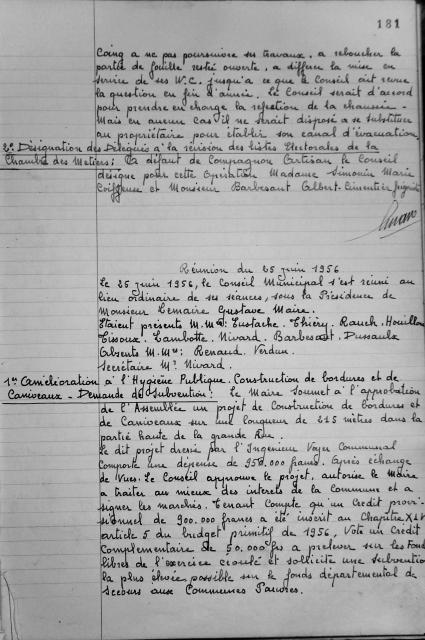 181
Coing a ne pas poursuivre ses travaux, a reboucher la
partie de fouille restée ouverte, a différer la mise en
service de ses W.C. jusqu'a ce que le Conseil ait revue
la question en fin d'année. Le Conseil serait d'accord
pour prendre en charge la réfection de la chaussée -
Mais en aucun cas il ne serait disposé a se substituer
au propriétaire pour établir son canal d'évacuation.
2º Désignation des Délégués a la révision des listes Electorales de la
Chambre des Metiers: a défaut de Compagnon Artisan le Conseil
désigne pour cette Opération Madame Simonin Marie
Coiffeuse et Monsieur Barbesant Albert-Cimentier
Réunion du 25 juin 1956
Le 25 juin 1956, le Conseil Municipal s'est réuni au
lieu ordinaire de ses séances, sous la Présidence de
Monsieur Lemaire Gustave Maire.
Etaient présents M.M.rs: Eustache. Thiéry. Rauch. Houillon
Tissoux. Lambotte. Nivard. Barbesant. Dussaulx
Absents M.M.rs: Renaud. Verdun.
Secrétaire Mr. Nivard.
1º: Amélioration a l'Hygiène Publique. Construction de bordures et de
Caniveaux - Demande de Subvention: Le Maire Soumet a l'approbation
de l'Assemblée un projet de Construction de bordures et
de Caniveaux sur une longueur de 245 mètres dans la
partie haute de la grande Rue.
Le dit projet dressé par l'Ingénieur Voyer Communal
Comporte une dépense de 950.000 francs. Après échange
de Vues. Le Conseil approuve le projet, autorise le Maire
a traiter au mieux des interets de la Commune et a
signer les marchés. Tenant Compte qu'un Crédit provi-
sionnel de 900.000 francs a été inscrit au Chapitre
article 5 du budget primitif de 1956, Vote un Crédit
Complémentaire de 50.000 frs a prelever sur les Fonds
libres de l'exercice écoulé et sollicite une subvention
la plus élevée possible sur le fonds départemental de
Secours aux Communes Pauvres.